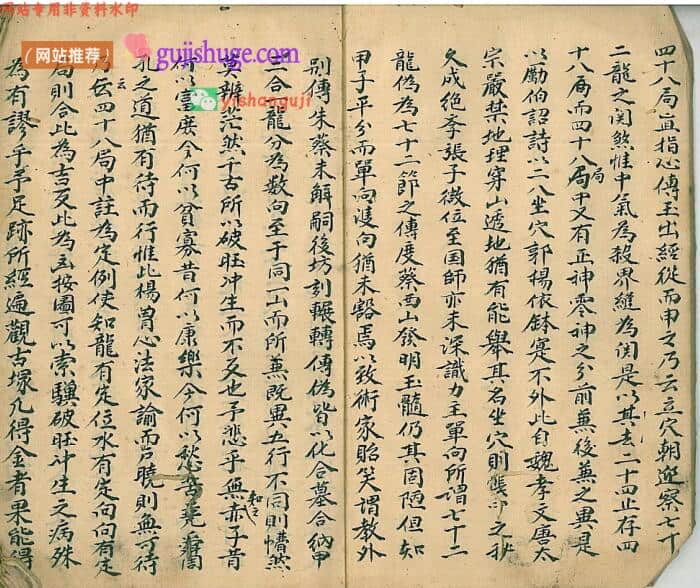 网站专用非资料水印
(网站推荐)
gujishuge.com
yishanguji
四十八局直指心傳玉出經從而申之乃云立穴朝迎察七十
二龍之関煞惟中氣為殺界縫為関是以其去二十四止存四
十八局而四十八局中又有正神零神之分前兼後兼之異是
以勵伯詔詩以二八坐穴郭楊依鉢寔不外此自魏孝文唐太
宗嚴禁地理穿山透地猶有能舉其名坐穴則之秘
久成絶季張子微位至国師亦未深識力主單向所謂七十二
龍偽為七十二節之傳度蔡西山發明玉髓仍其固陋但知
甲子平分而單向雙向猶未豁焉以致術家貽笑謂教外
别傳朱蔡未觧嗣後坊刻輾轉傳偽皆以化合墓合納甲
三合龍分為数向至于同一山而所兼既異五行不同則懵然
莫辨茫然千古所以破旺冲生而不反也予悲乎無知之赤子昔
何以富庶今何以貧寡昔何以康樂今何以愁苦堯
孔之道猶有待而行惟此楊曽心法家諭而户曉則無可待
乃云四十八局中註為定例使知龍有定位水有定向向有定
局則合此為吉反此為凶按圖可以索驥破旺冲生之病殊
為有謬乎予足跡所經遍觀古塚凡得金者果能得